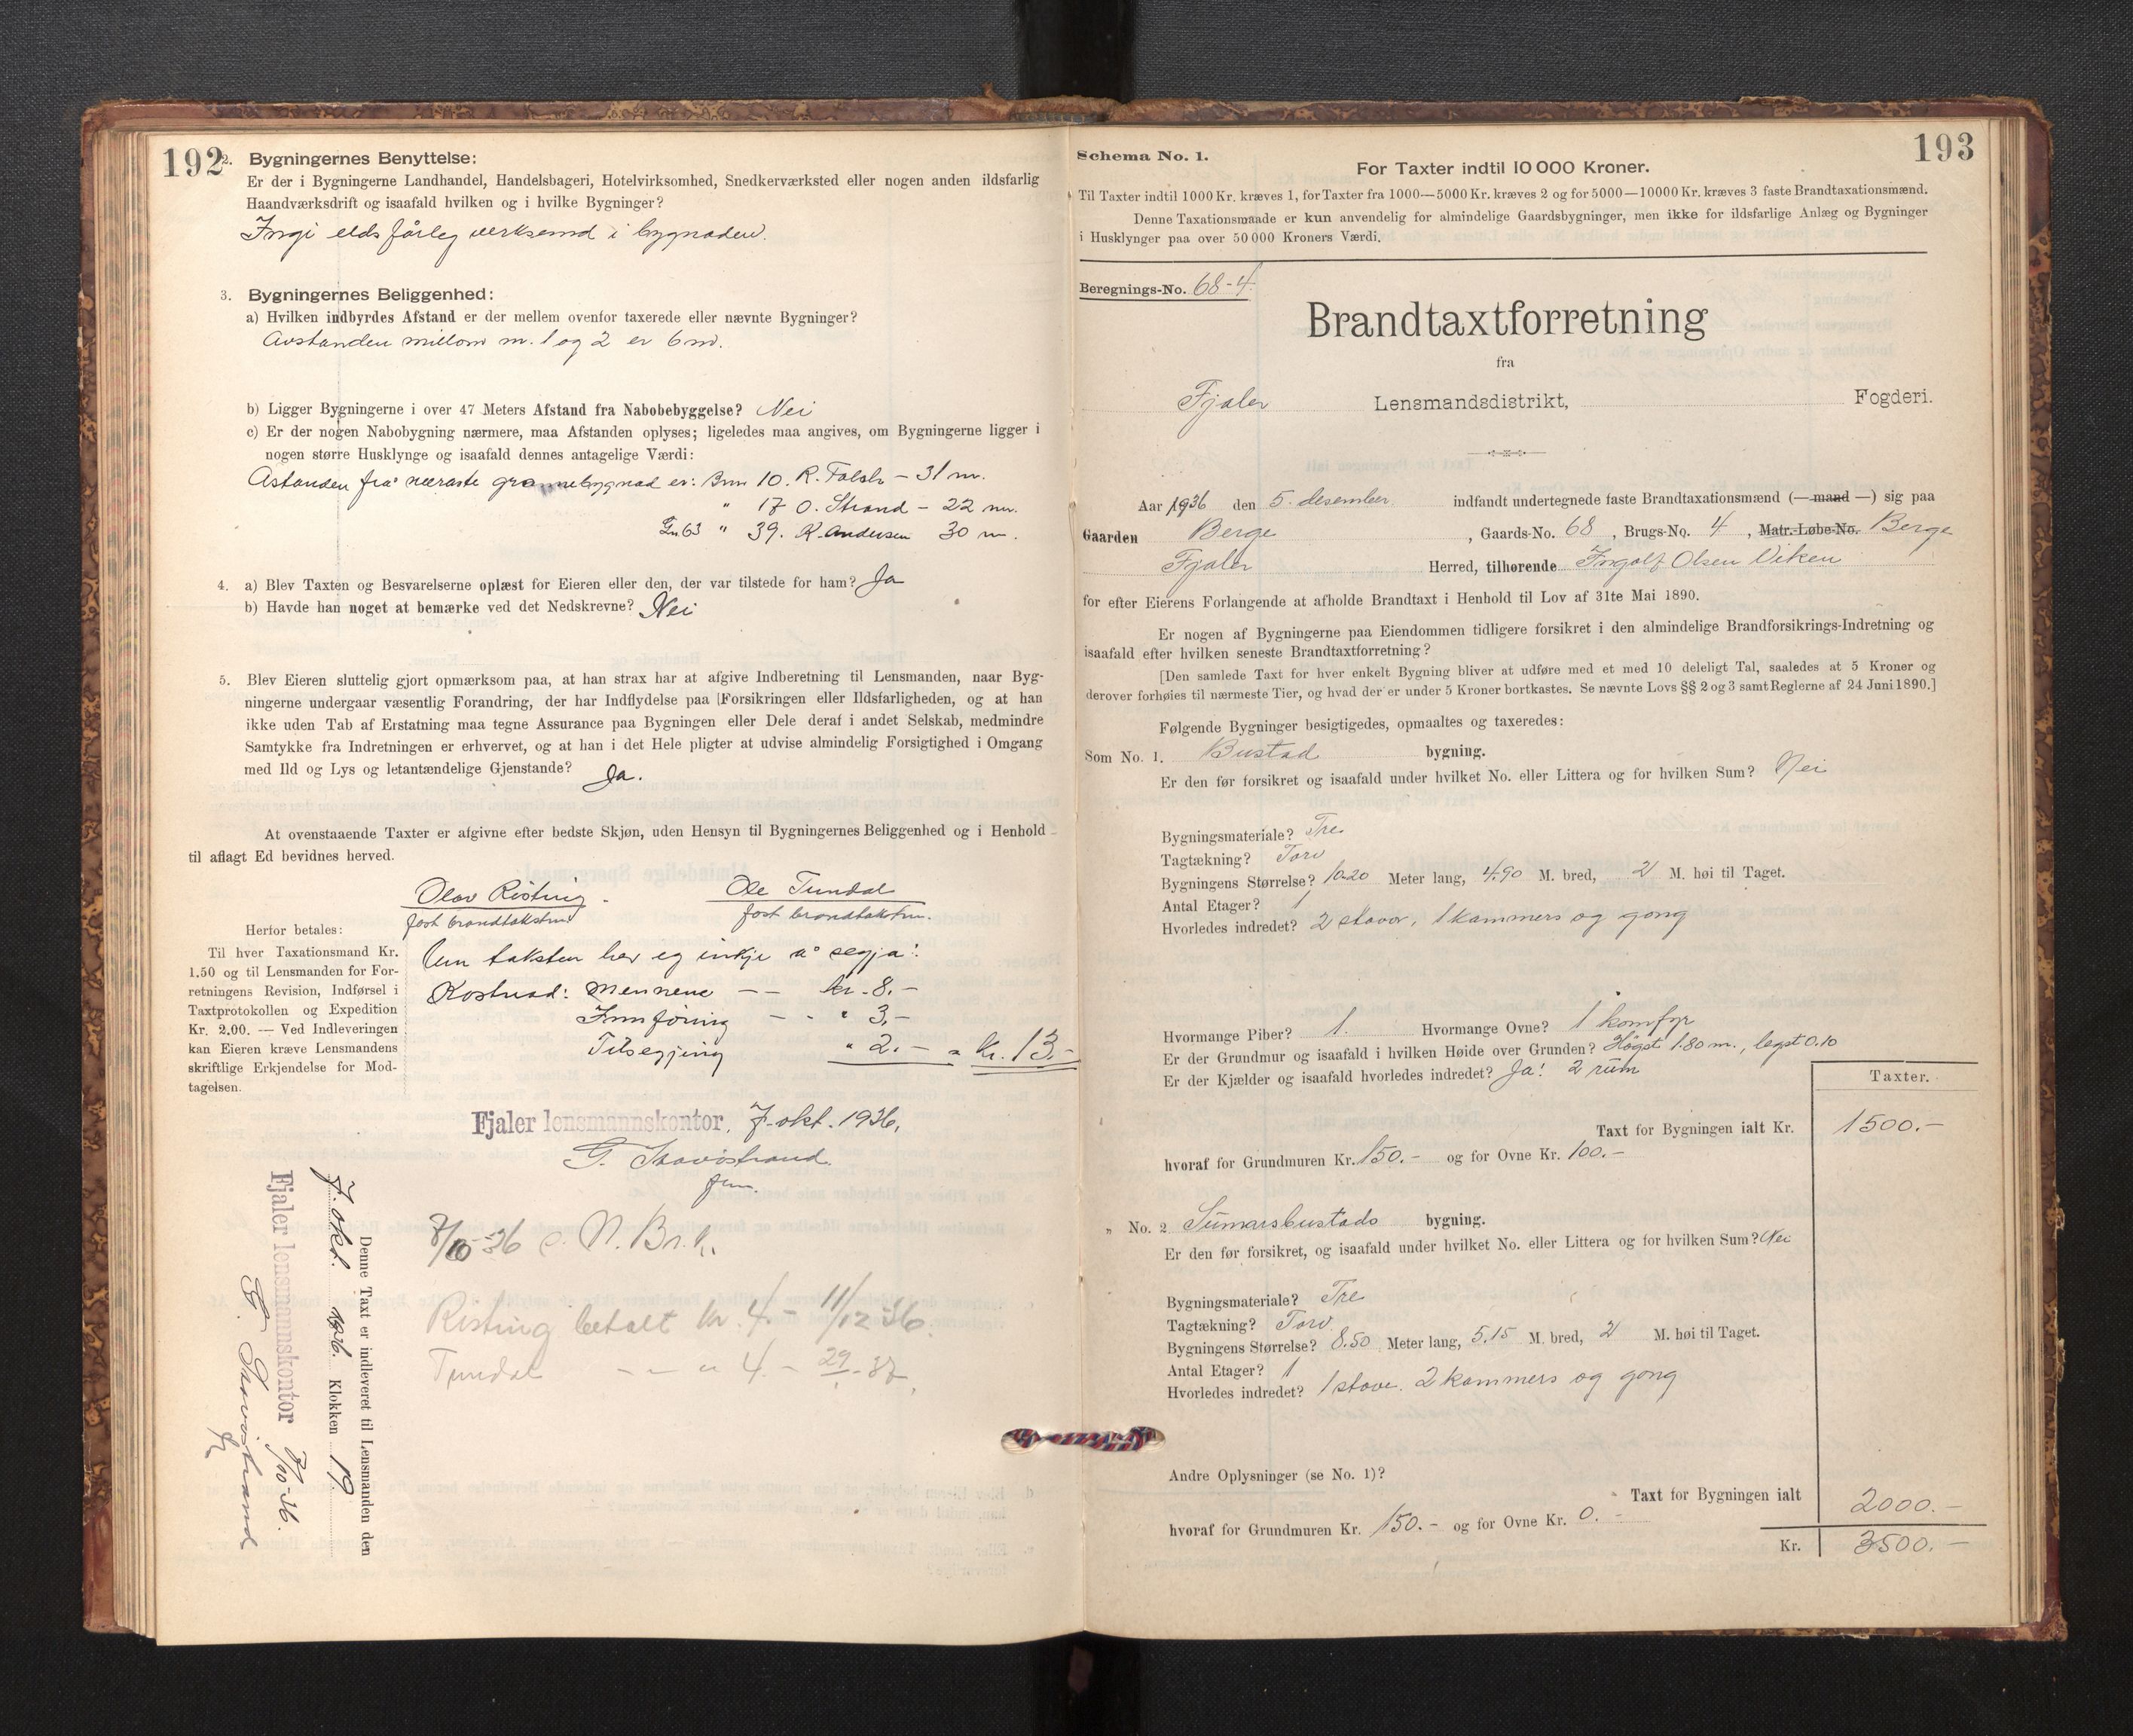 192
2. Bygningernes Benyttelse:
Er der i Bygningerne Landhandel, Handelsbageri, Hotelvirksomhed, Snedkerværksted eller nogen anden ildsfarlig
Haandværksdrift og isaafald hvilken og i hvilke Bygninger?
Ingi eldsfårleg verksemd i bygnaden.
3. Bygningernes Beliggenhed:
a) Hvilken indbyrdes Afstand er der mellem ovenfor taxerede eller nævnte Bygninger?
Avstanden millom nr. 1 og 2 er 6 m.
b) Ligger Bygningerne i over 47 Meters Afstand fra Nabobebyggelse? Nei
c) Er der nogen Nabobygning nærmere, maa Afstanden oplyses; ligeledes maa angives, om Bygningerne ligger i
nogen større Husklynge og isaafald dennes antagelige Værdi:
Astanden frå næraste grannebygnad er: Bnr 10. R. - 31 m.
" 17 O. Strand - 22 m.
Gn 63 " 39. K. Andersen 30 m.
4. a) Blev Taxten og Besvarelserne oplæst for Eieren eller den, der var tilstede for ham? Ja
b) Havde han noget at bemærke ved det Nedskrevne? Nei
5. Blev Eieren sluttelig gjort opmærksom paa, at han strax har at afgive Indberetning til Lensmanden, naar Byg-
ningerne undergaar væsentlig Forandring, der har Indflydelse paa Forsikringen eller Ildsfarligheden, og at han
ikke uden Tab af Erstatning maa tegne Assurance paa Bygningen eller Dele deraf i andet Selskab, medmindre
Samtykke fra Indretningen er erhvervet, og at han i det Hele pligter at udvise almindelig Forsigtighed i Omgang
med Ild og Lys og letantændelige Gjenstande? Ja.
At ovenstaaende Taxter er afgivne efter bedste Skjøn, uden Hensyn til Bygningernes Beliggenhed og i Henhold
til aflagt Ed bevidnes herved.
Olav Risting. Ole Tundal
fast brandtakstm. fast brandtakstm.
Herfor betales:
Til hver Taxationsmand Kr.
1.50 og til Lensmanden for For-
retningens Revision, Indførsel i
Taxtprotokollen og Expedition
Kr. 2.00. — Ved Indleveringen
kan Eieren kræve Lensmandens
skriftlige Erkjendelse for Mod-
tagelsen.
Um taksten har eg inkje å segja!
Kostnad: Mennene - - kr. 8.-
Innføring - - " 3,-
Tilsegjing " 2.- = kr. 13.-
Fjaler lensmannskontor, 7. okt. 1936.
G. Stavøstrand
fm.
Denne Taxt er indleveret til Lensmanden den
7. okt. 1936. Klokken 19.
Fjaler lensmannskontor 7/10-36.
G. Stavøstrand
7/10-36 e. N. Br. k.
Risting betalt kr. 4.- 11/12-36.
Tundal - - " 4.- 29/ -37.
193
Schema No. 1.
For Taxter indtil 10 000 Kroner.
Til Taxter indtil 1000 Kr. kræves 1, for Taxter fra 1000—5000 Kr. kræves 2 og for 5000—10000 Kr. kræves 3 faste Brandtaxationsmænd.
Denne Taxationsmaade er kun anvendelig for almindelige Gaardsbygninger, men ikke for ildsfarlige Anlæg og Bygninger
i Husklynger paa over 50 000 Kroners Værdi.
Beregnings-No. 68-4
Brandtaxtforretning
fra
Fjaler Lensmandsdistrikt, Fogderi.
Aar 1936 den 5. desember indfandt undertegnede faste Brandtaxationsmænd (— mand —) sig paa
Gaarden Berge, Gaards-No. 68, Brugs-No. 4, Matr.-Løbe-No. Berge
Fjaler Herred, tilhørende Ingolf Olsen Viken
for efter Eierens Forlangende at afholde Brandtaxt i Henhold til Lov af 31te Mai 1890.
Er nogen af Bygningerne paa Eiendommen tidligere forsikret i den almindelige Brandforsikrings-Indretning og
isaafald efter hvilken seneste Brandtaxtforretning?
[Den samlede Taxt for hver enkelt Bygning bliver at udføre med et med 10 deleligt Tal, saaledes at 5 Kroner og
derover forhøies til nærmeste Tier, og hvad der er under 5 Kroner bortkastes. Se nævnte Lovs §§ 2 og 3 samt Reglerne af 24 Juni 1890.]
Følgende Bygninger besigtigedes, opmaaltes og taxeredes:
Som No. 1. Bustad bygning.
Er den før forsikret og isaafald under hvilket No. eller Littera og for hvilken Sum? Nei
Bygningsmateriale? Tre
Tagtækning? Torv
Bygningens Størrelse? 10.20 Meter lang, 4.90 M. bred, 2 M. høi til Taget.
Antal Etager? 1
Hvorledes indredet? 2 stover, 1 kammers og gong
Hvormange Piber? 1. Hvormange Ovne? 1 komfyr
Er der Grundmur og isaafald i hvilken Høide over Grunden? Høgst 1.80 m., lægst 0.10
Er der Kjælder og isaafald hvorledes indredet? Ja! 2 rum
Taxter.
Taxt for Bygningen ialt Kr. 1500.-
hvoraf for Grundmuren Kr. 150.- og for Ovne Kr. 100.-
" No. 2 Sumarsbustads bygning.
Er den før forsikret, og isaafald under hvilket No. eller Littera og for hvilken Sum? Nei
Bygningsmateriale? Tre
Tagtækning? Torv
Bygningens Størrelse? 8.50 Meter lang, 5.15 M. bred, 2 M. høi til Taget.
Antal Etager? 1
Hvorledes indredet? 1 stove. 2 kammers og gong
Andre Oplysninger (se No. 1)?
Taxt for Bygningen ialt 2000.-
hvoraf for Grundmuren Kr. 150.- og for Ovne Kr. 0.-
Kr. 3500.-